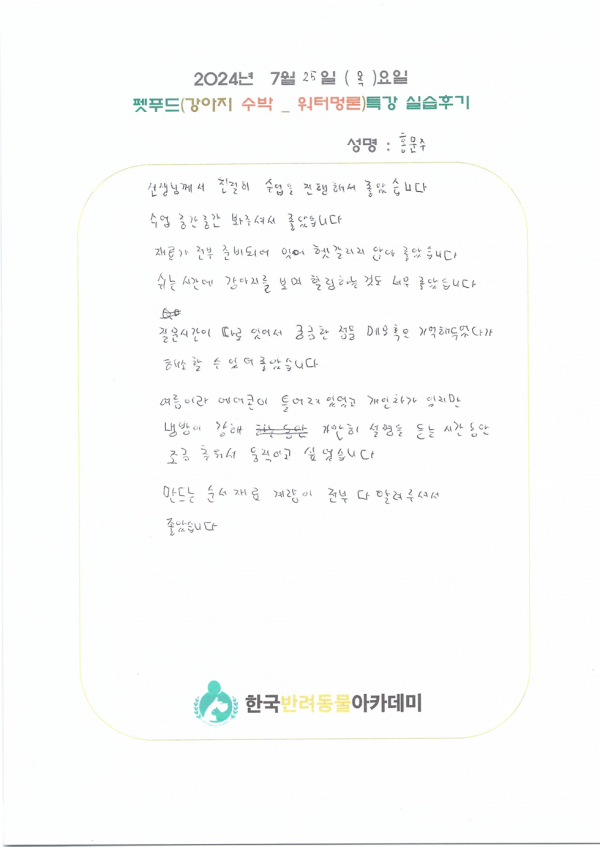 2024년 7월 25일 (목)요일
펫푸드(강아지 수박 _ 워터멍론)특강 실습후기
성명 : 홍문주
선생님께서 친절히 수업을 진행해서 좋았습니다
수업 중간중간 봐주셔서 좋았습니다
재료가 전부 준비되어 있어 헷갈리지 않아 좋았습니다
쉬는시간에 강아지를 보며 힐링하는것도 너무 좋았습니다
질문시간이 따로 있어서 궁금한 점을 메모혹은 기억해두었다가
해소할 수 있어 좋았습니다
여름이라 에어콘이 틀어져있었고 개인차가 있지만
냉방이 강해 가만히 설명을 듣는 시간동안
조금 추워서 움직이고 싶었습니다
만드는 순서 재료 계량이 전부 다 알려주셔서
좋았습니다
한국반려동물아카데미